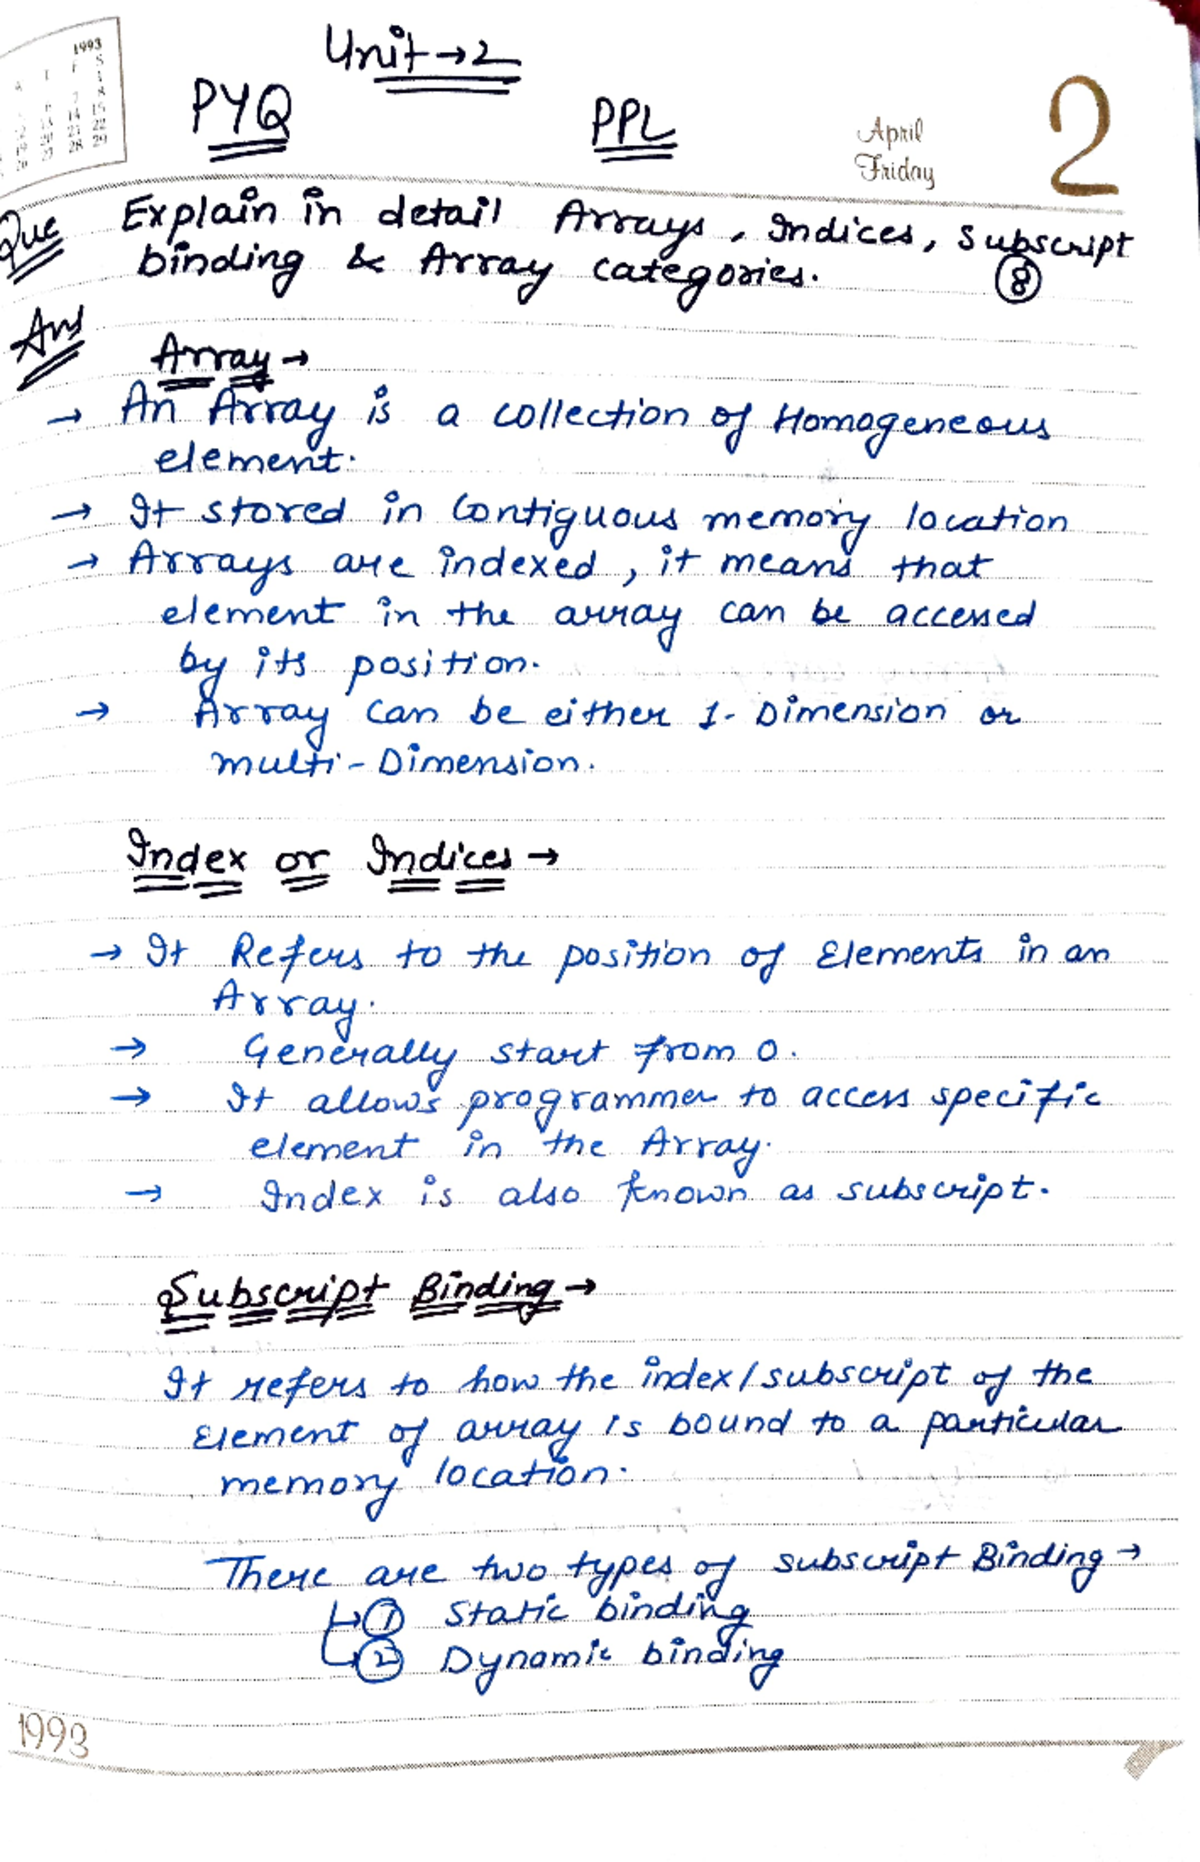 1993
Unit → 2
PYQ
PPL
April
Friday
2
Que Explain in detail Arrays, Indices, Subscript
binding & Array categories. 8
Ans
Array →
→ An Array is a collection of Homogeneous
element.
→ It stored in Contiguous memory location
→ Arrays are indexed, it means that
element in the array can be accessed
by its position.
→ Array can be either 1-Dimension or
multi-Dimension.
Index or Indices →
→ It Refers to the position of Elements in an
Array.
→ Generally start from 0.
→ It allows programmer to access specific
element in the Array.
→ Index is also known as subscript.
Subscript Binding →
It refers to how the index/subscript of the
Element of array is bound to a particular
memory location.
There are two types of subscript Binding →
① Static binding
② Dynamic binding
1993